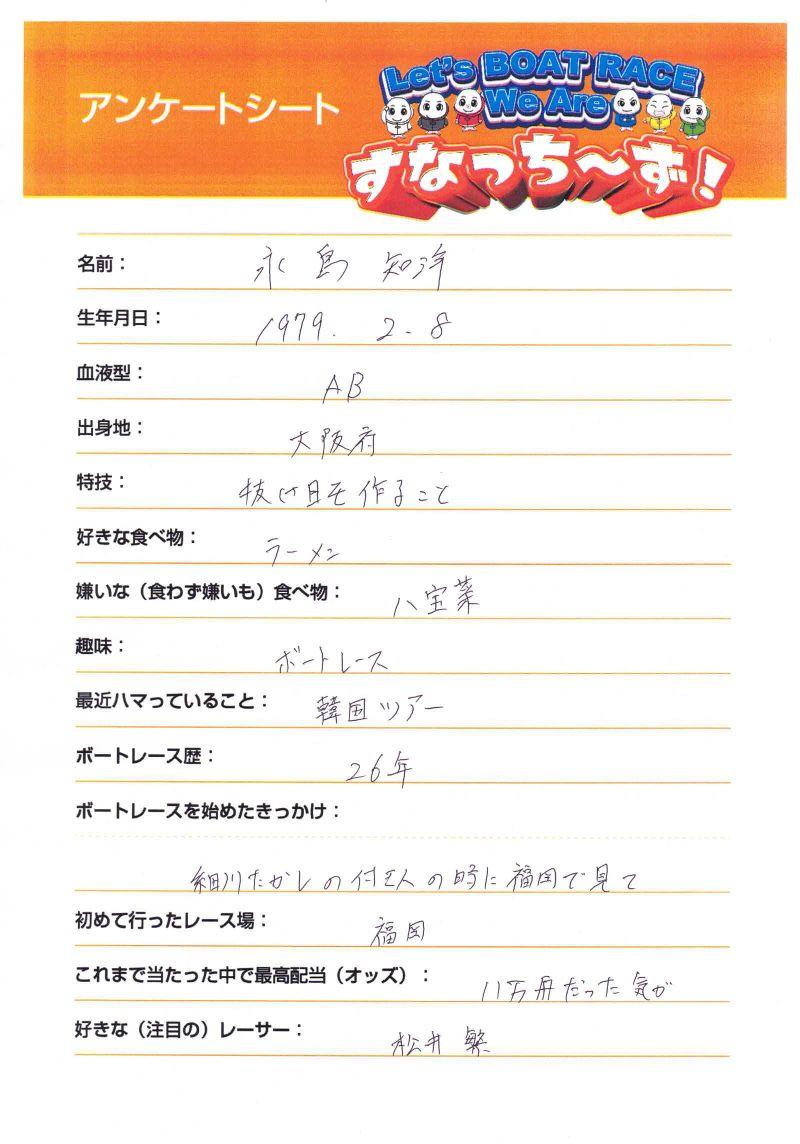 アンケートシート
Let's BOAT RACE
We Are
すなっち〜ず!
名前： 永島 知洋
生年月日： 1979. 2.8
血液型： AB
出身地： 大阪府
特技： 抜け目を作ること
好きな食べ物： ラーメン
嫌いな（食わず嫌いも）食べ物： 八宝菜
趣味： ボートレース
最近ハマっていること： 韓国ツアー
ボートレース歴： 26年
ボートレースを始めたきっかけ：
細川たかしの付き人の時に福岡で見て
初めて行ったレース場： 福岡
これまで当たった中で最高配当（オッズ）： 11万舟だった気が
好きな（注目の）レーサー： 松井 繁